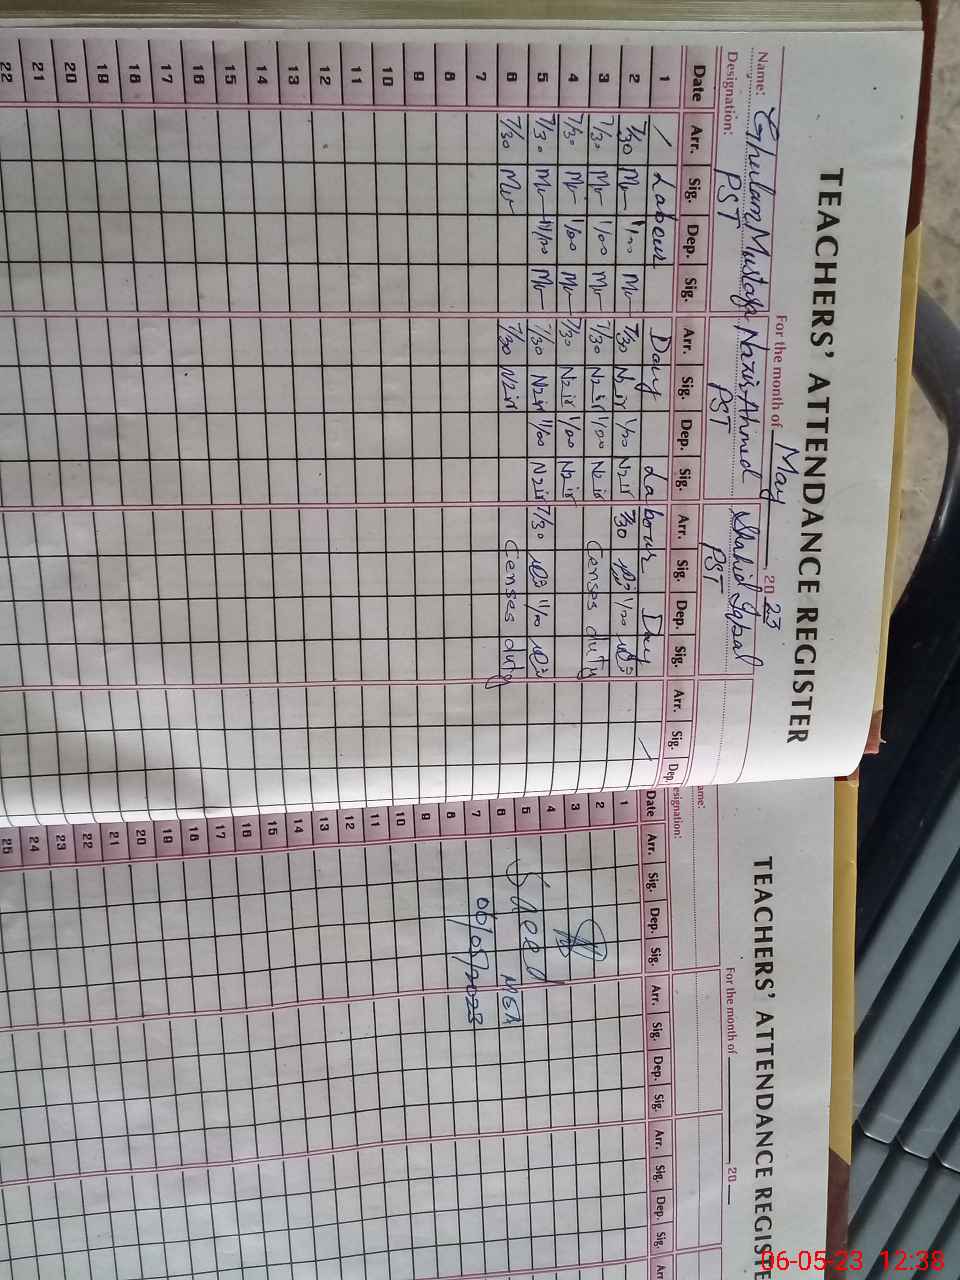 TEACHERS' ATTENDANCE REGISTER
For the month of May 20 23
Name: Ghulam Mustafa Nazir Ahmed Shahid Iqbal
Designation: PST PST PST
Date Arr. Sig. Dep. Sig. Arr. Sig. Dep. Sig. Arr. Sig. Dep. Sig. Arr. Sig. Dep.
1 / Labour Day Labour Day /
2 7/30 1/00 7/30 N2ir 1/00 N2ir 7/30 1/00
3 7/30 1/00 7/30 N2ir 1/00 N2ir Censes duty
4 7/30 1/00 7/30 N2ir 1/00 N2ir
5 7/30 11/00 7/30 N2ir 11/00 N2ir 7/30 11/00
6 7/30 7/30 N2ir Censes duty
7
8
9
10
11
12
13
14
15
16
17
18
19
20
21
22
TEACHERS' ATTENDANCE REGISTE
For the month of 20
ame:
esignation:
Date Arr. Sig. Dep. Sig. Arr. Sig. Dep. Sig. Arr. Sig. Dep. Sig. Arr
1
2
3
4
5 Saeed
6 MEA
7 06/05/2023
8
9
10
11
12
13
14
15
16
17
18
19
20
21
22
23
24
25
06-05-23 12:38